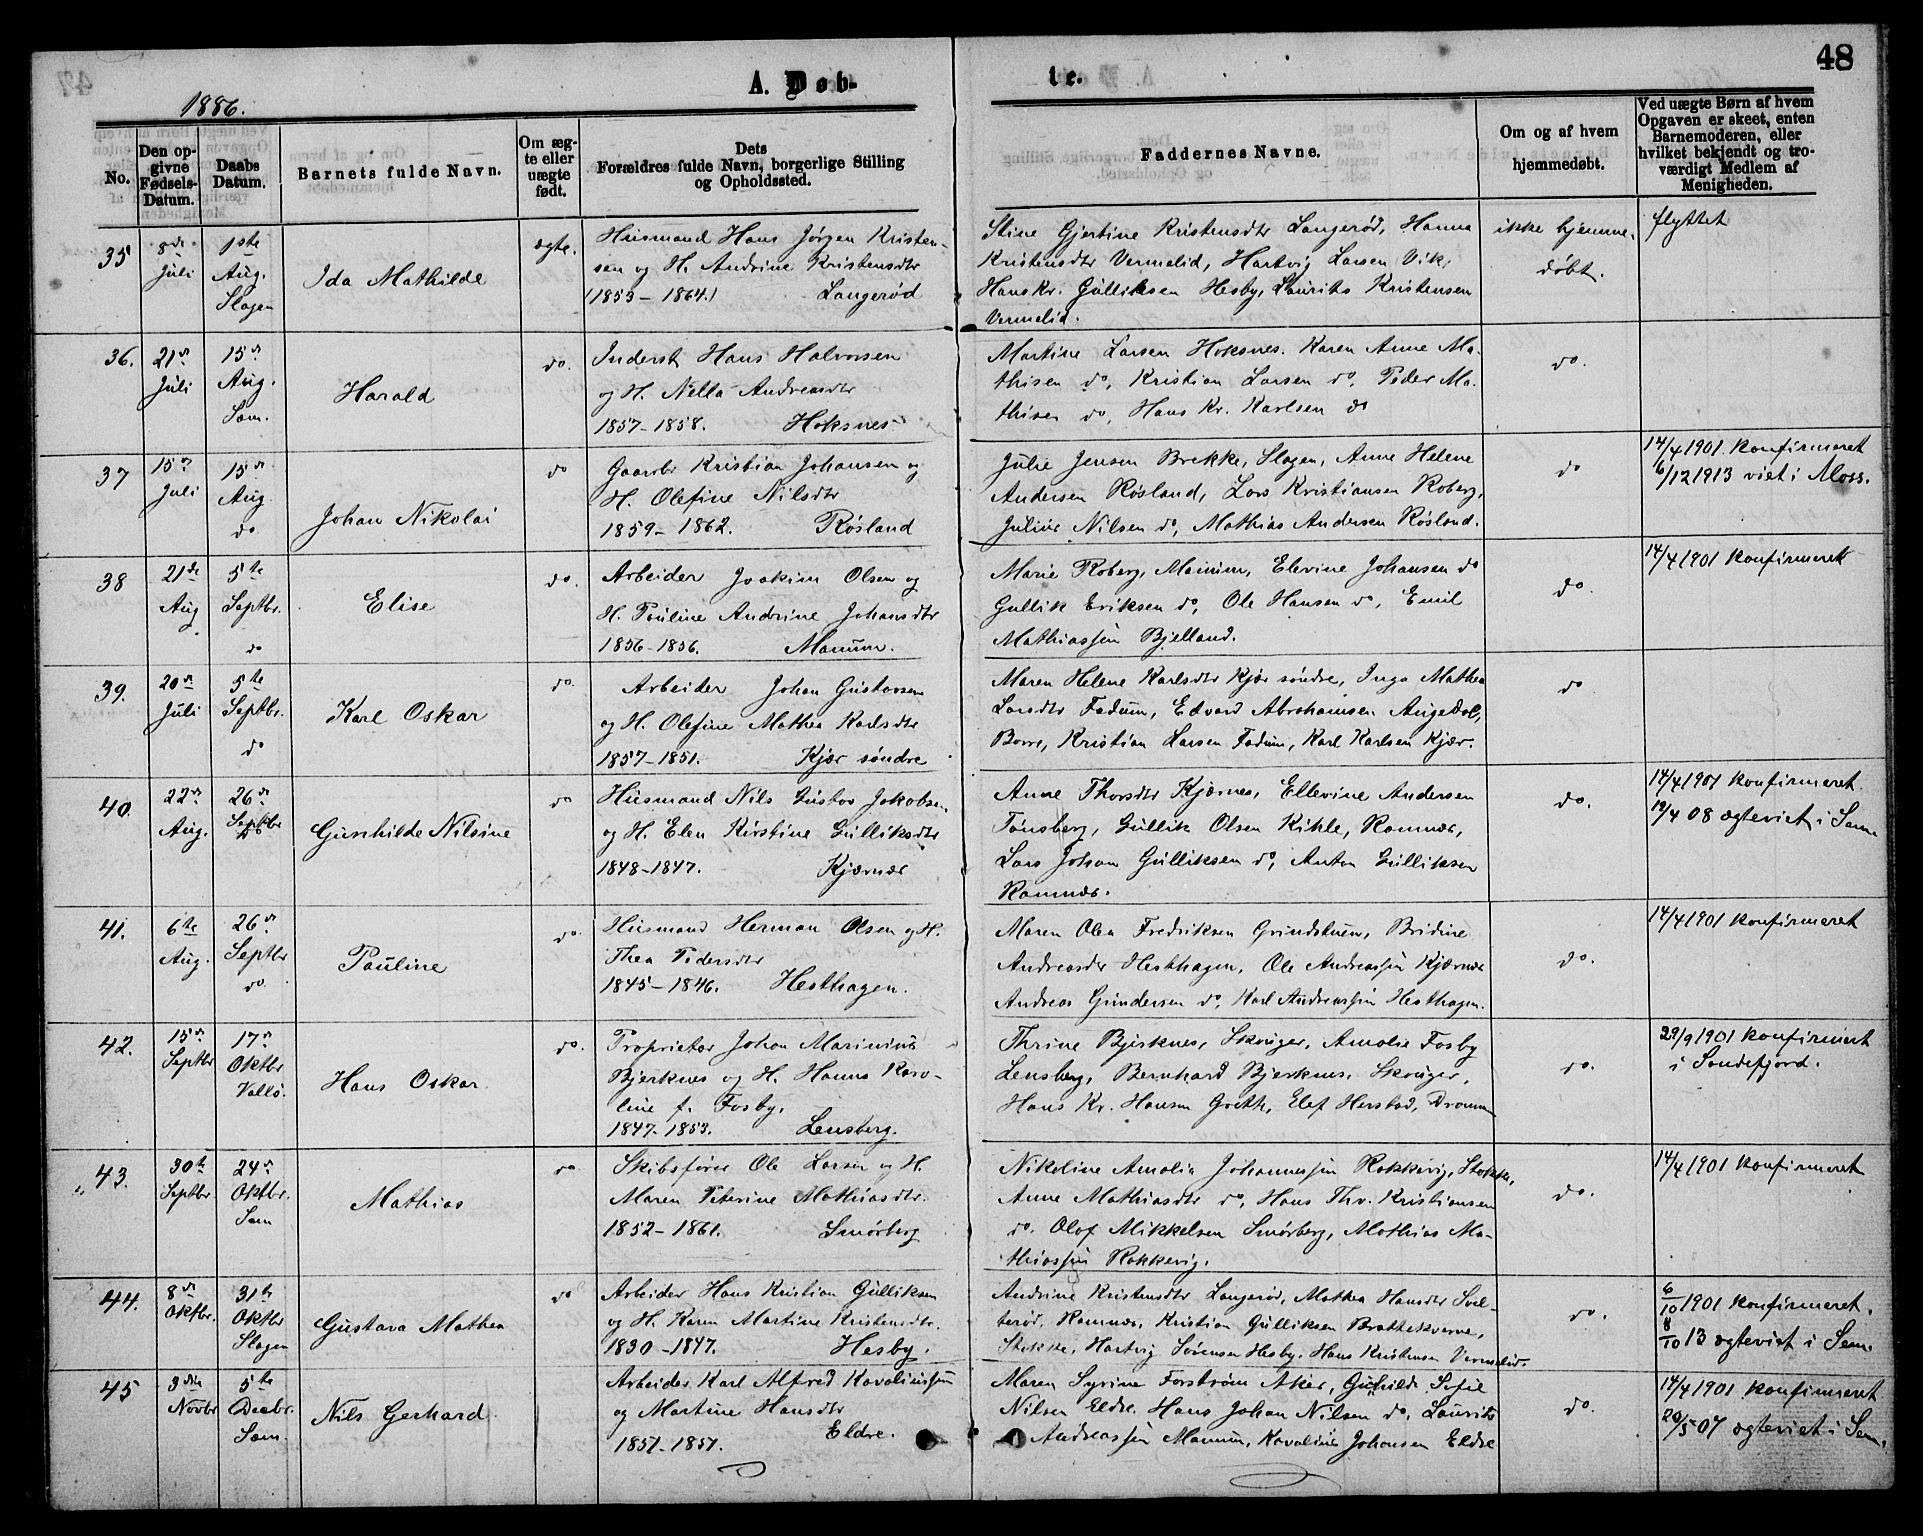 48
A. Døb-
te.
1886.
No.
Den opgivne Fødsels-Datum.
Daabs Datum.
Barnets fulde Navn.
Om ægte eller uægte født.
Dets Forældres fulde Navn, borgerlige Stilling og Opholdssted.
Faddernes Navne.
Om og af hvem hjemmedøbt.
Ved uægte Børn af hvem Opgaven er skeet, enten Barnemoderen, eller hvilket bekjendt og troværdigt Medlem af Menigheden.
35
8de Juli
1ste Aug. Slagen
Ida Mathilde
ægte.
Husmand Hans Jørgen Kristen-
sen og H. Andrine Kristensdtr
(1853-1864.) Langerød
Stine Gjertine Kristensdtr Langerød, Hanna
Kristensdtr Vermelid, Hartvig Larsen Vik,
Hans Kr. Gulliksen Hesby, Laurits Kristensen
Vermelid.
ikke hjemme-
døbt.
flyttet
36.
21de Juli
15de Aug. Sem.
Harald
do.
Inderst Hans Halvorsen
og H. Nella Andreasdtr
1857-1858. Hoksnes
Martine Larsen Hoksnes. Karen Anne Ma-
thisen do, Kristian Larsen do, Peder Ma-
thisen do, Hans Kr. Karlsen do
do.
37
15de Juli
15de Aug do
Johan Nikolai
do
Gaardbr Kristian Johansen og
H. Olefine Nilsdtr
1859-1862. Røsland
Julie Jensen Brekke, Slagen, Anne Helene
Andersen Røsland, Lars Kristiansen Roberg,
Julius Nilsen do, Mathias Andersen Røsland.
do
14/4 1901 konfirmeret
6/12 1913 viet i Moss.
38
21de Aug
5te Septbr. do
Elise
do.
Arbeider Joakim Olsen og
H. Pauline Andrine Johansdtr
1856-1856. Manum.
Marie Roberg, Manum, Elevine Johansen do
Gullik Eriksen do, Ole Hansen do, Emil
Mathiassen Bjelland.
do.
14/4 1901 konfirmeret
39.
20de Juli
5te Septbr. do
Karl Oskar
do.
Arbeider Johan Gustavsen
og H. Olefine Mathea Karlsdtr
1857-1851. Kjær søndre
Maren Helene Karlsdtr Kjær søndre, Inga Mathea
Larsdtr Fadum, Edvard Abrahamsen Augedal,
Borre, Kristian Larsen Fadum, Karl Karlsen Kjær.
do
40.
22de Aug.
26de Septbr do
Gunhilde Nilsine
do
Husmand Nils Gustav Jakobsen,
og H. Elen Kirstine Gulliksdtr
1848-1847. Kjærnæs
Anne Thorsdtr Kjærnes, Ellevine Andersen
Tønsberg, Gullik Olsen Kihle, Ramnæs,
Lars Johan Gulliksen do, Anton Gulliksen
Ramnæs.
do.
14/4 1901 konfirmeret.
19/4 08 ægteviet i Sem
41.
6te Aug.
26de Septbr do.
Pauline
do.
Husmand Herman Olsen og H.
Thea Pedersdtr
1845-1846. Hesthagen.
Maren Olea Fredriksen Grindstuen, Bridine
Andreasdtr Hesthagen, Ole Andreassen Kjærnæs
Andreas Gundersen do, Karl Andreassen Hesthagen.
do.
14/4 1901 konfirmeret
42.
15de Septbr
17de Oktbr Vallø.
Hans Oskar
do.
Proprietær Johan Marinius
Bjerknes og H. Hanna Karo-
line f. Fosby.
1847-1853. Lensberg.
Thrine Bjerknes, Skouger, Amalie Fosby
Lensberg, Bernhard Bjerknes, Skouger,
Hans Kr. Hansen Greth, Elef Herstad, Drammen
do.
29/9 1901 konfirmert
i Sandefjord.
43.
30te Septbr
24de Oktbr. Sem
Mathias
do
Skibsfører Ole Larsen og H.
Maren Peterine Mathiasdtr.
1852-1861. Smørberg
Nikoline Amalia Johannessen Rakkevig, Stokke,
Anne Mathiasdtr do, Hans Thv. Kristiansen
do. Olaf Mikkelsen Smørberg, Mathias Ma-
thiassen Rakkevig.
do.
14/4 1901 konfirmeret
44.
8de Oktbr.
31te Oktbr Slagen
Gustava Mathea
do
Arbeider Hans Kristian Gulliksen
og H. Karen Martine Kristensdtr.
1830-1847. Hesby.
Andrine Kristensdtr Langerød, Mathea Hansdtr Svel-
terød, Ramnæs, Kristian Gulliksen Brattekverne,
Stokke, Hartvig Sørensen Hesby. Hans Kristensen Vermelid.
do.
6/10 1901 konfirmeret.
8/10 13 ægteviet i Sem.
45
3die Novbr
5te Decbr. Sem.
Nils Gerhard.
Arbeider Karl Alfred Kovaliussen
og Martine Hansdtr
1851-1857. Eldre.
Maren Syrine Forstrøm Aker, Gunhilde Sofie
Nilsen Eldre. Hans Johan Nilsen do. Laurits
Andreassen Manum, Kovalius Johansen Eldre
do.
14/4 1901 konfirmeret
20/5 07 ægteviet i Sem.